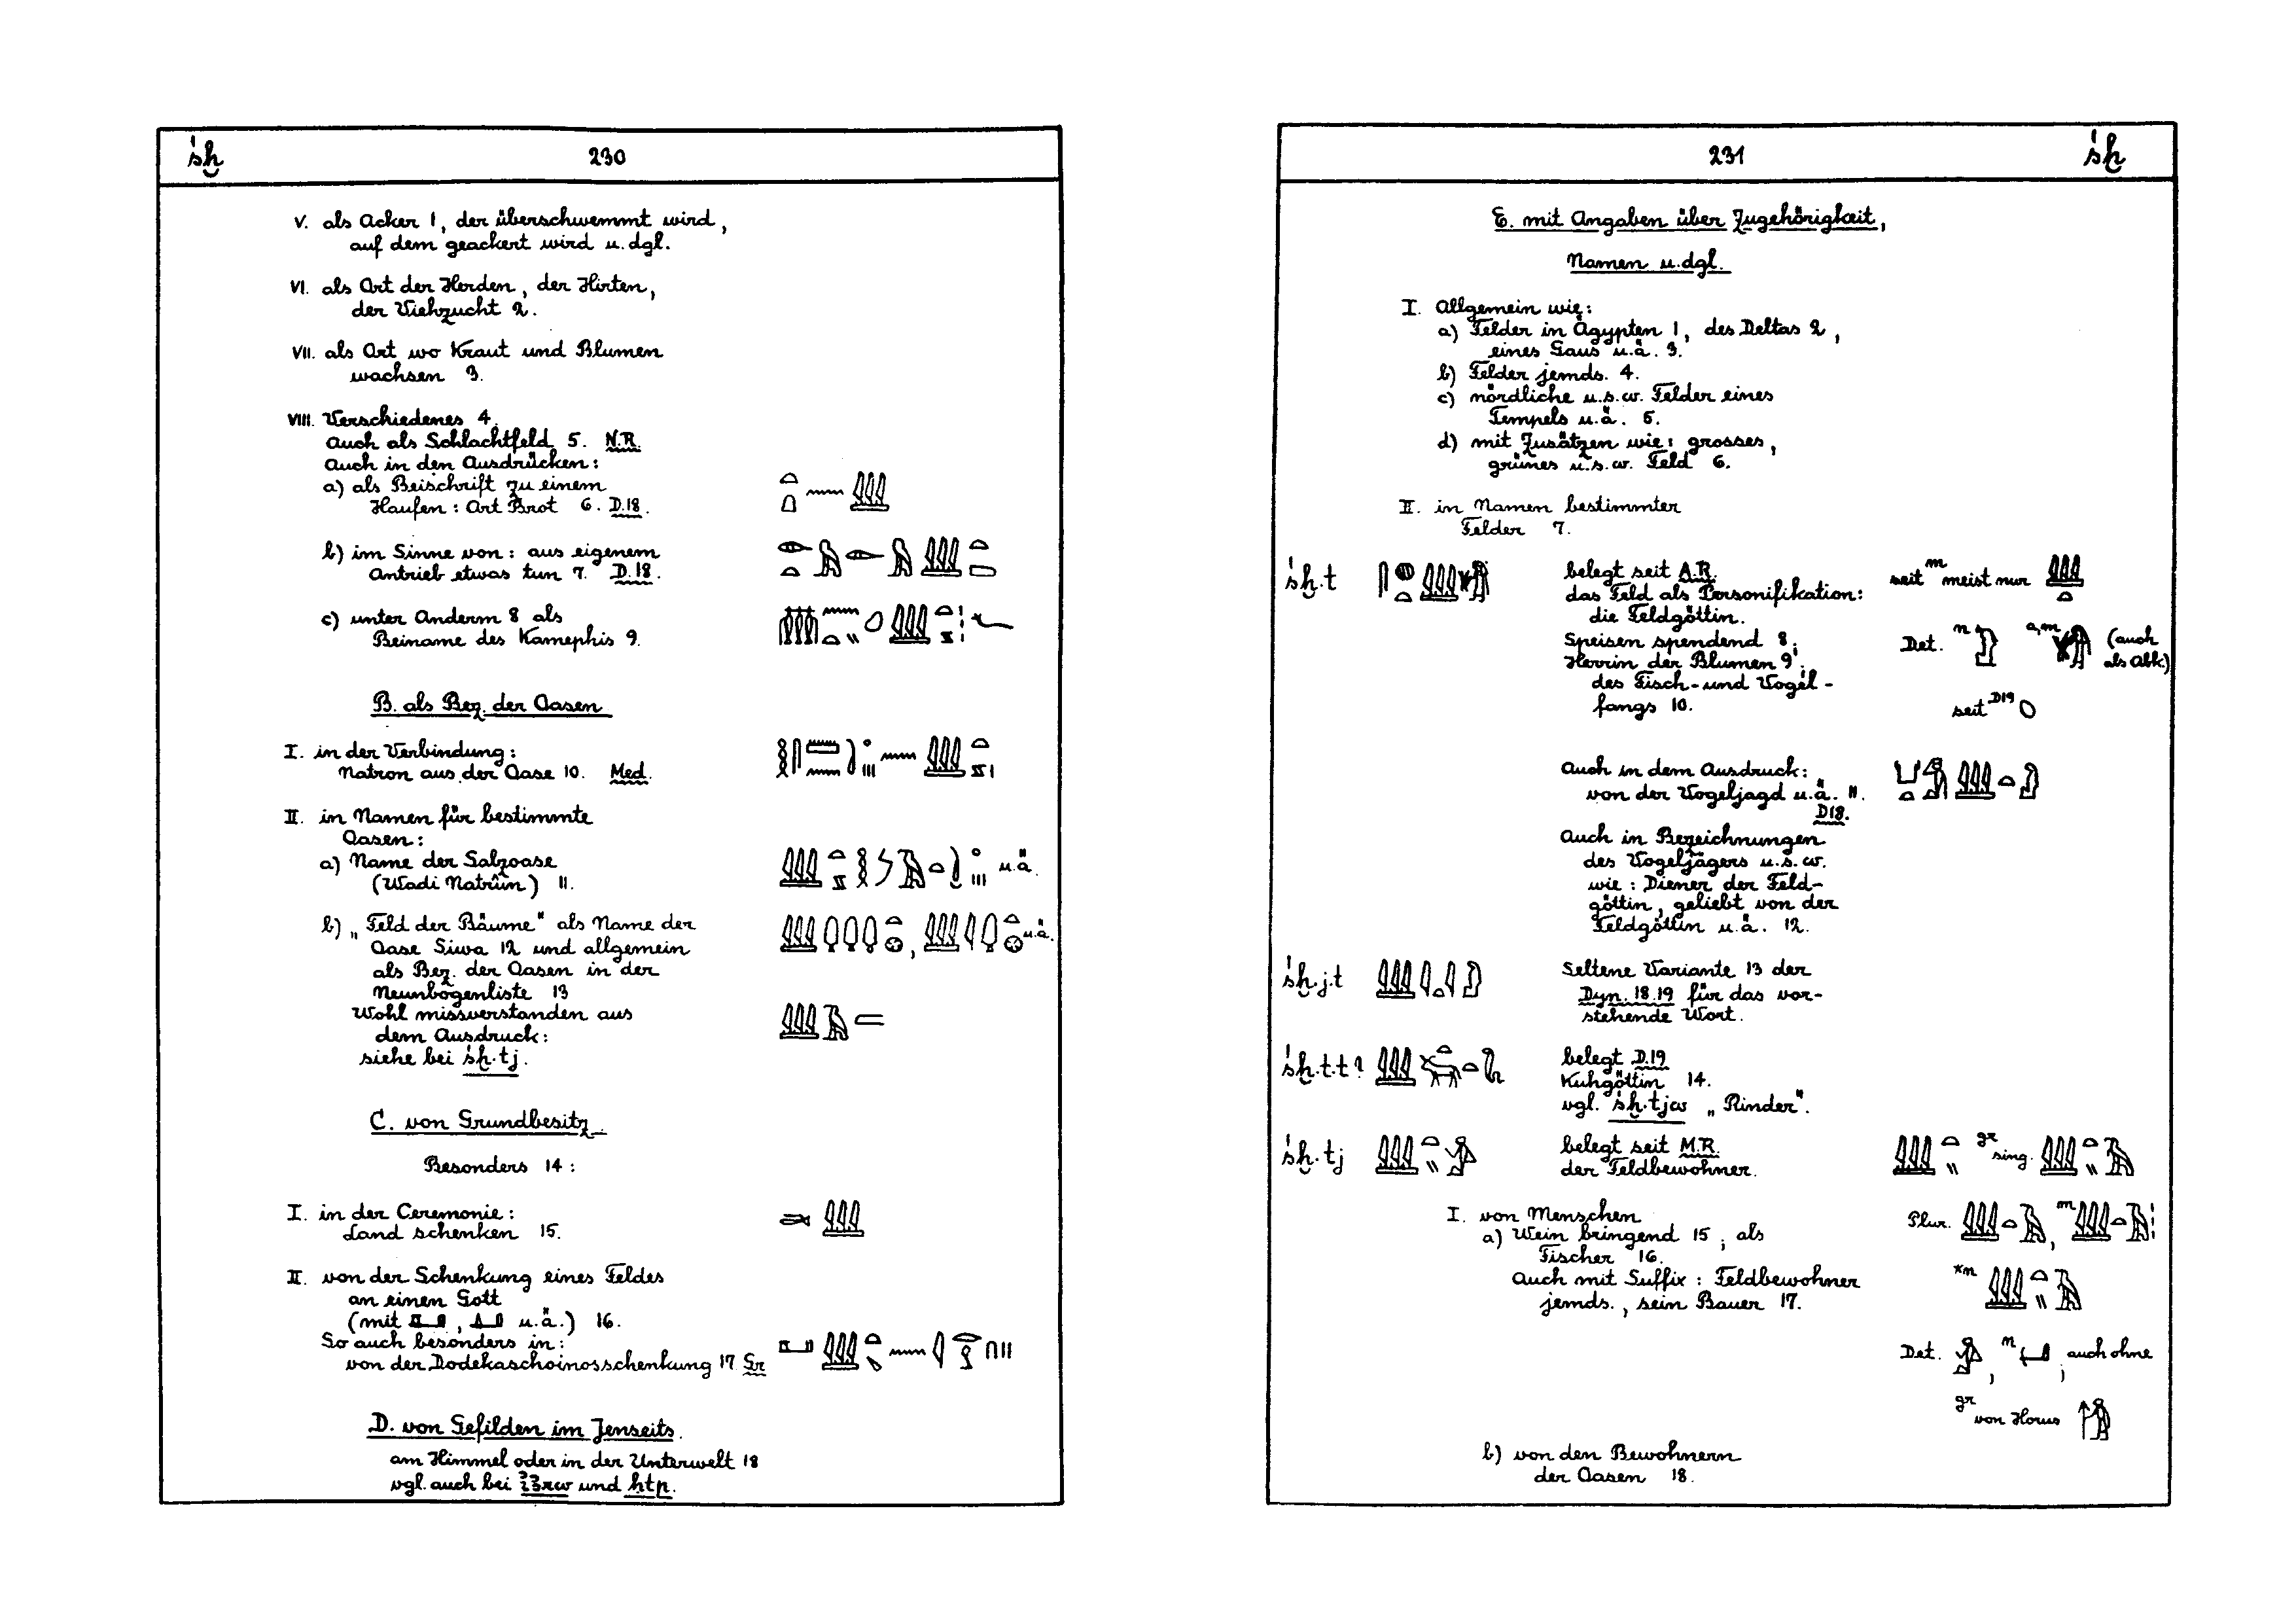 śḫ 230
V. als Acker 1, der überschwemmt wird,
auf dem geackert wird u. dgl.
VI. als Ort der Herden, der Hirten,
der Viehzucht 2.
VII. als Ort wo Kraut und Blumen
wachsen 3.
VIII. Verschiedenes 4.
Auch als Schlachtfeld 5. N.R.
Auch in den Ausdrücken:
a) als Beischrift zu einem
Haufen: Art Brot 6. D.18.
b) im Sinne von: aus eigenem
Antrieb etwas tun 7. D.18.
c) unter Anderm 8 als
Beiname des Kamephis 9.
B. als Bez. der Oasen
I. in der Verbindung:
Natron aus der Oase 10. Med.
II. in Namen für bestimmte
Oasen:
a) Name der Salzoase
(Wadi Natrûn) 11. u.ä.
b) „Feld der Bäume" als Name der
Oase Siwa 12 und allgemein u.ä.
als Bez. der Oasen in der
Neunbogenliste 13
Wohl missverstanden aus
dem Ausdruck:
siehe bei śḫ.tj.
C. von Grundbesitz
Besonders 14:
I. in der Ceremonie:
Land schenken 15.
II. von der Schenkung eines Feldes
an einen Gott
(mit , u.ä.) 16.
So auch besonders in:
von der Dodekaschoinosschenkung 17. Gr
D. von Gefilden im Jenseits.
am Himmel oder in der Unterwelt 18
vgl. auch bei i҆ꜣrw und ḥtp.
231 śḫ
E. mit Angaben über Zugehörigkeit,
Namen u.dgl.
I. Allgemein wie:
a) Felder in Ägypten 1, des Deltas 2,
eines Gaus u.ä. 3.
b) Felder jemds. 4.
c) nördliche u.s.w. Felder eines
Tempels u.ä. 5.
d) mit Zusätzen wie: grosses,
grünes u.s.w. Feld 6.
II. in Namen bestimmter
Felder 7.
śḫ.t belegt seit A.R. seit m meist nur
das Feld als Personifikation:
die Feldgöttin.
Speisen spendend 8; Det. n a,m (auch
Herrin der Blumen 9; als Abk.)
des Fisch- und Vogel-
fangs 10. seit D19
Auch in dem Ausdruck:
von der Vogeljagd u.ä. 11.
D18.
Auch in Bezeichnungen
des Vogeljägers u.s.w.
wie: Diener der Feld-
göttin, geliebt von der
Feldgöttin u.ä. 12.
śḫ.j.t Seltene Variante 13 der
Dyn. 18.19 für das vor-
stehende Wort.
śḫ.t.t? belegt D.19
Kuhgöttin 14.
vgl. śḫ.tjw „Rinder".
śḫ.tj belegt seit M.R. gr sing.
der Feldbewohner.
I. von Menschen Plur. , m
a) Wein bringend 15; als
Fischer 16.
Auch mit Suffix: Feldbewohner *m
jemds., sein Bauer 17.
Det. , m ; auch ohne
gr von Horus
b) von den Bewohnern
der Oasen 18.